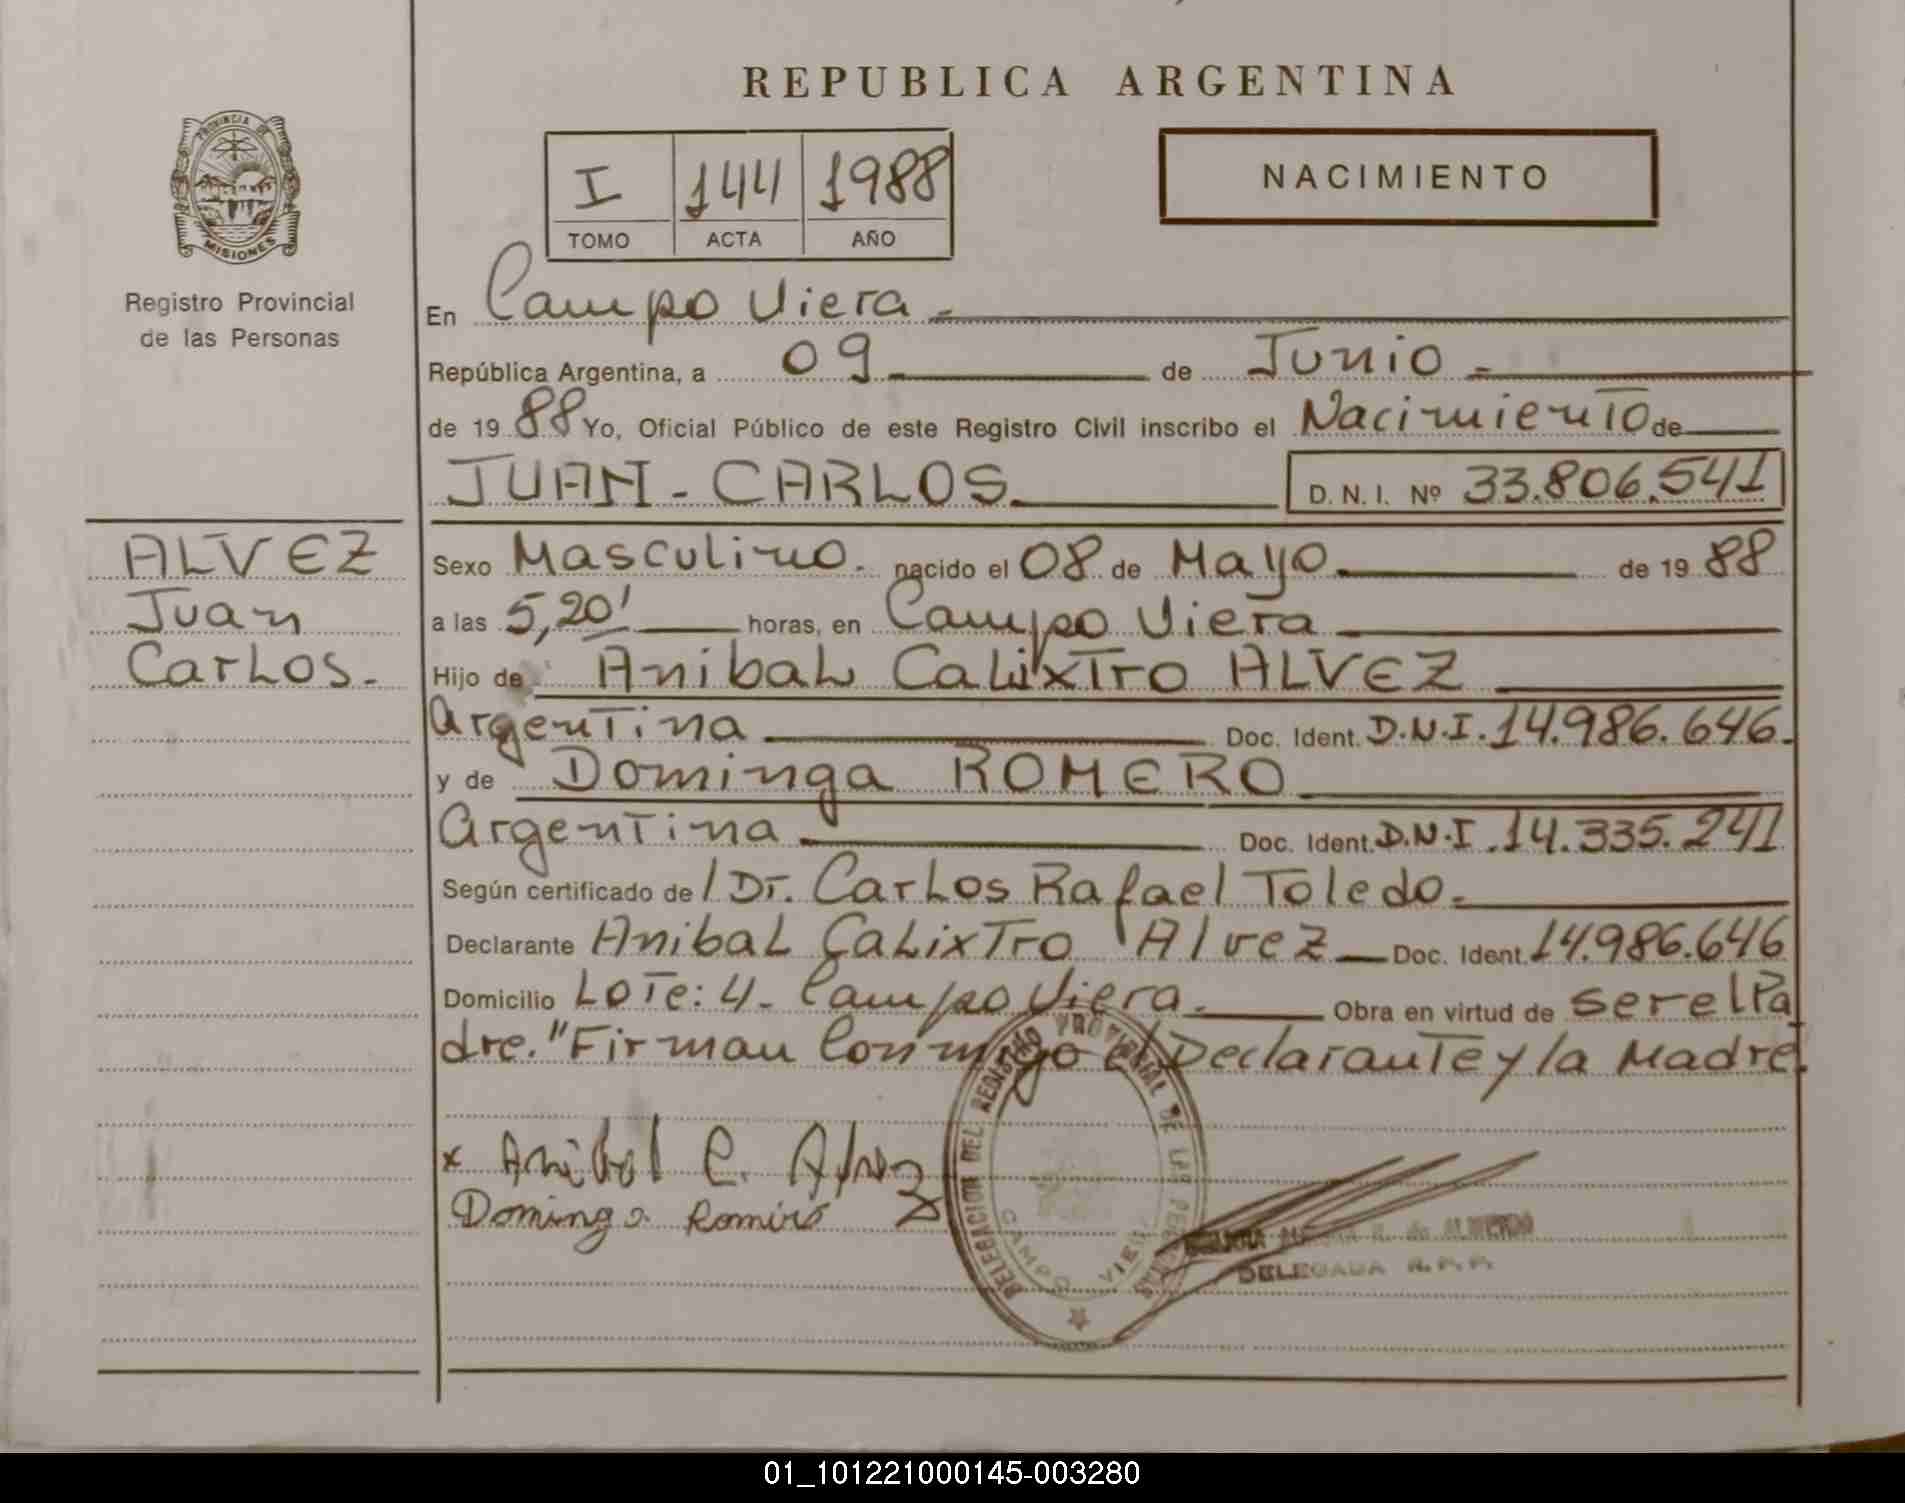 REPUBLICA ARGENTINA
PROVINCIA DE
MISIONES
Registro Provincial
de las Personas
I 144 1988
TOMO ACTA AÑO
NACIMIENTO
En Campo Viera.-
República Argentina, a 09 de Junio.-
de 19 88 Yo, Oficial Público de este Registro Civil inscribo el Nacimiento de
JUAN-CARLOS. D. N. I. Nº 33.806.541
ALVEZ
Juan
Carlos.-
Sexo Masculino. nacido el 08 de Mayo. de 19 88
a las 5,20' horas, en Campo Viera
Hijo de Anibal Calixtro ALVEZ
Argentina Doc. Ident. D.N.I. 14.986.646.
y de Dominga ROMERO
Argentina Doc. Ident. D.N.I. 14.335.241
Según certificado de / Dr. Carlos Rafael Toledo.-
Declarante Anibal Calixtro Alvez Doc. Ident. 14.986.646
Domicilio Lote: 4- Campo Viera. Obra en virtud de ser el Pa
dre. "Firman Conmigo el Declarante y la Madre.
x Anibal C. Alvez
Dominga Romero x
DELEGACION DEL REGISTRO PROVINCIAL DE LAS PERSONAS
CAMPO VIERA
de ALMEIDA
DELEGADA R.P.P.
01_101221000145-003280